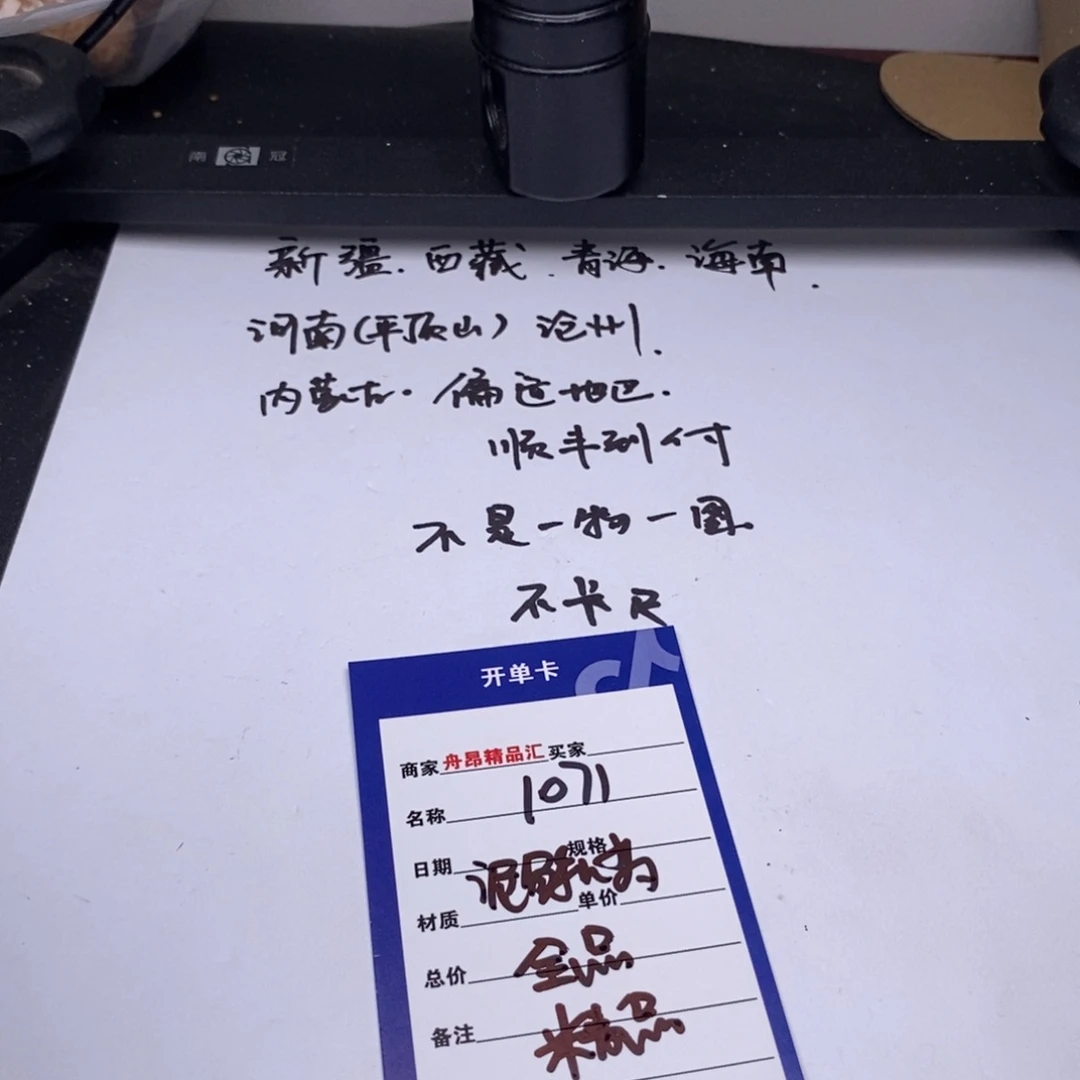 南 冠
新疆.西藏.青海.海南.
河南(平顶山)沧州.
内蒙古.偏远地区.
顺丰到付
不是一物一图.
不卡尺
开单卡
商家 舟昂精品汇 买家
名称 1071
日期 规格
材质 单价
总价 全品
备注 精品